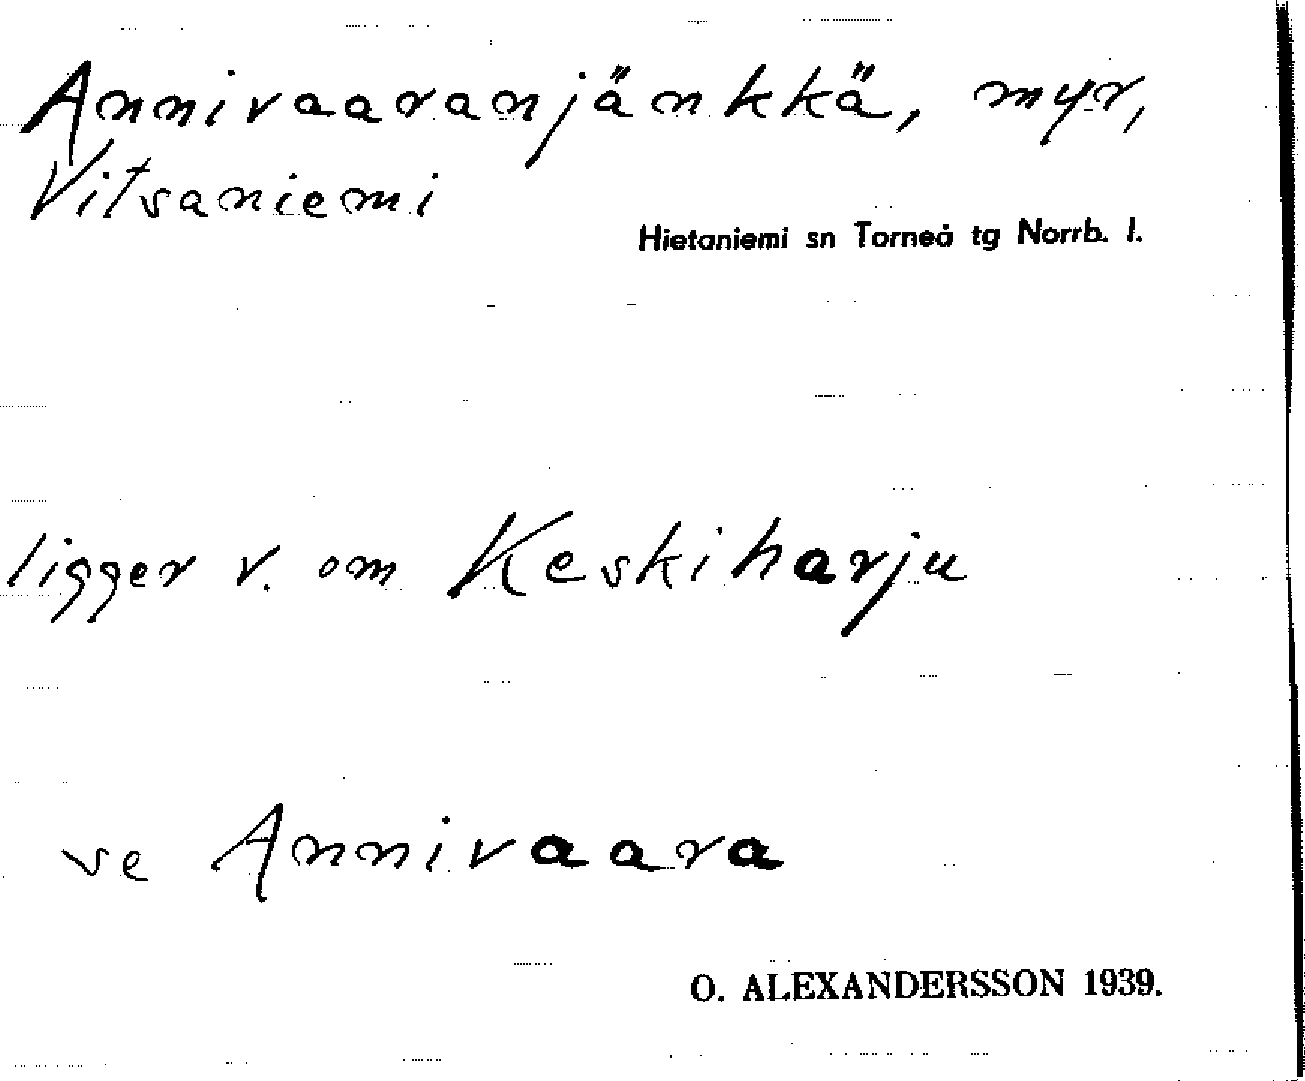 Annivaaranjänkkä, myr,
Vitsaniemi
Hietaniemi sn Torneå tg Norrb. l.
ligger v. om Keskiharju
se Annivaara
O. ALEXANDERSSON 1939.